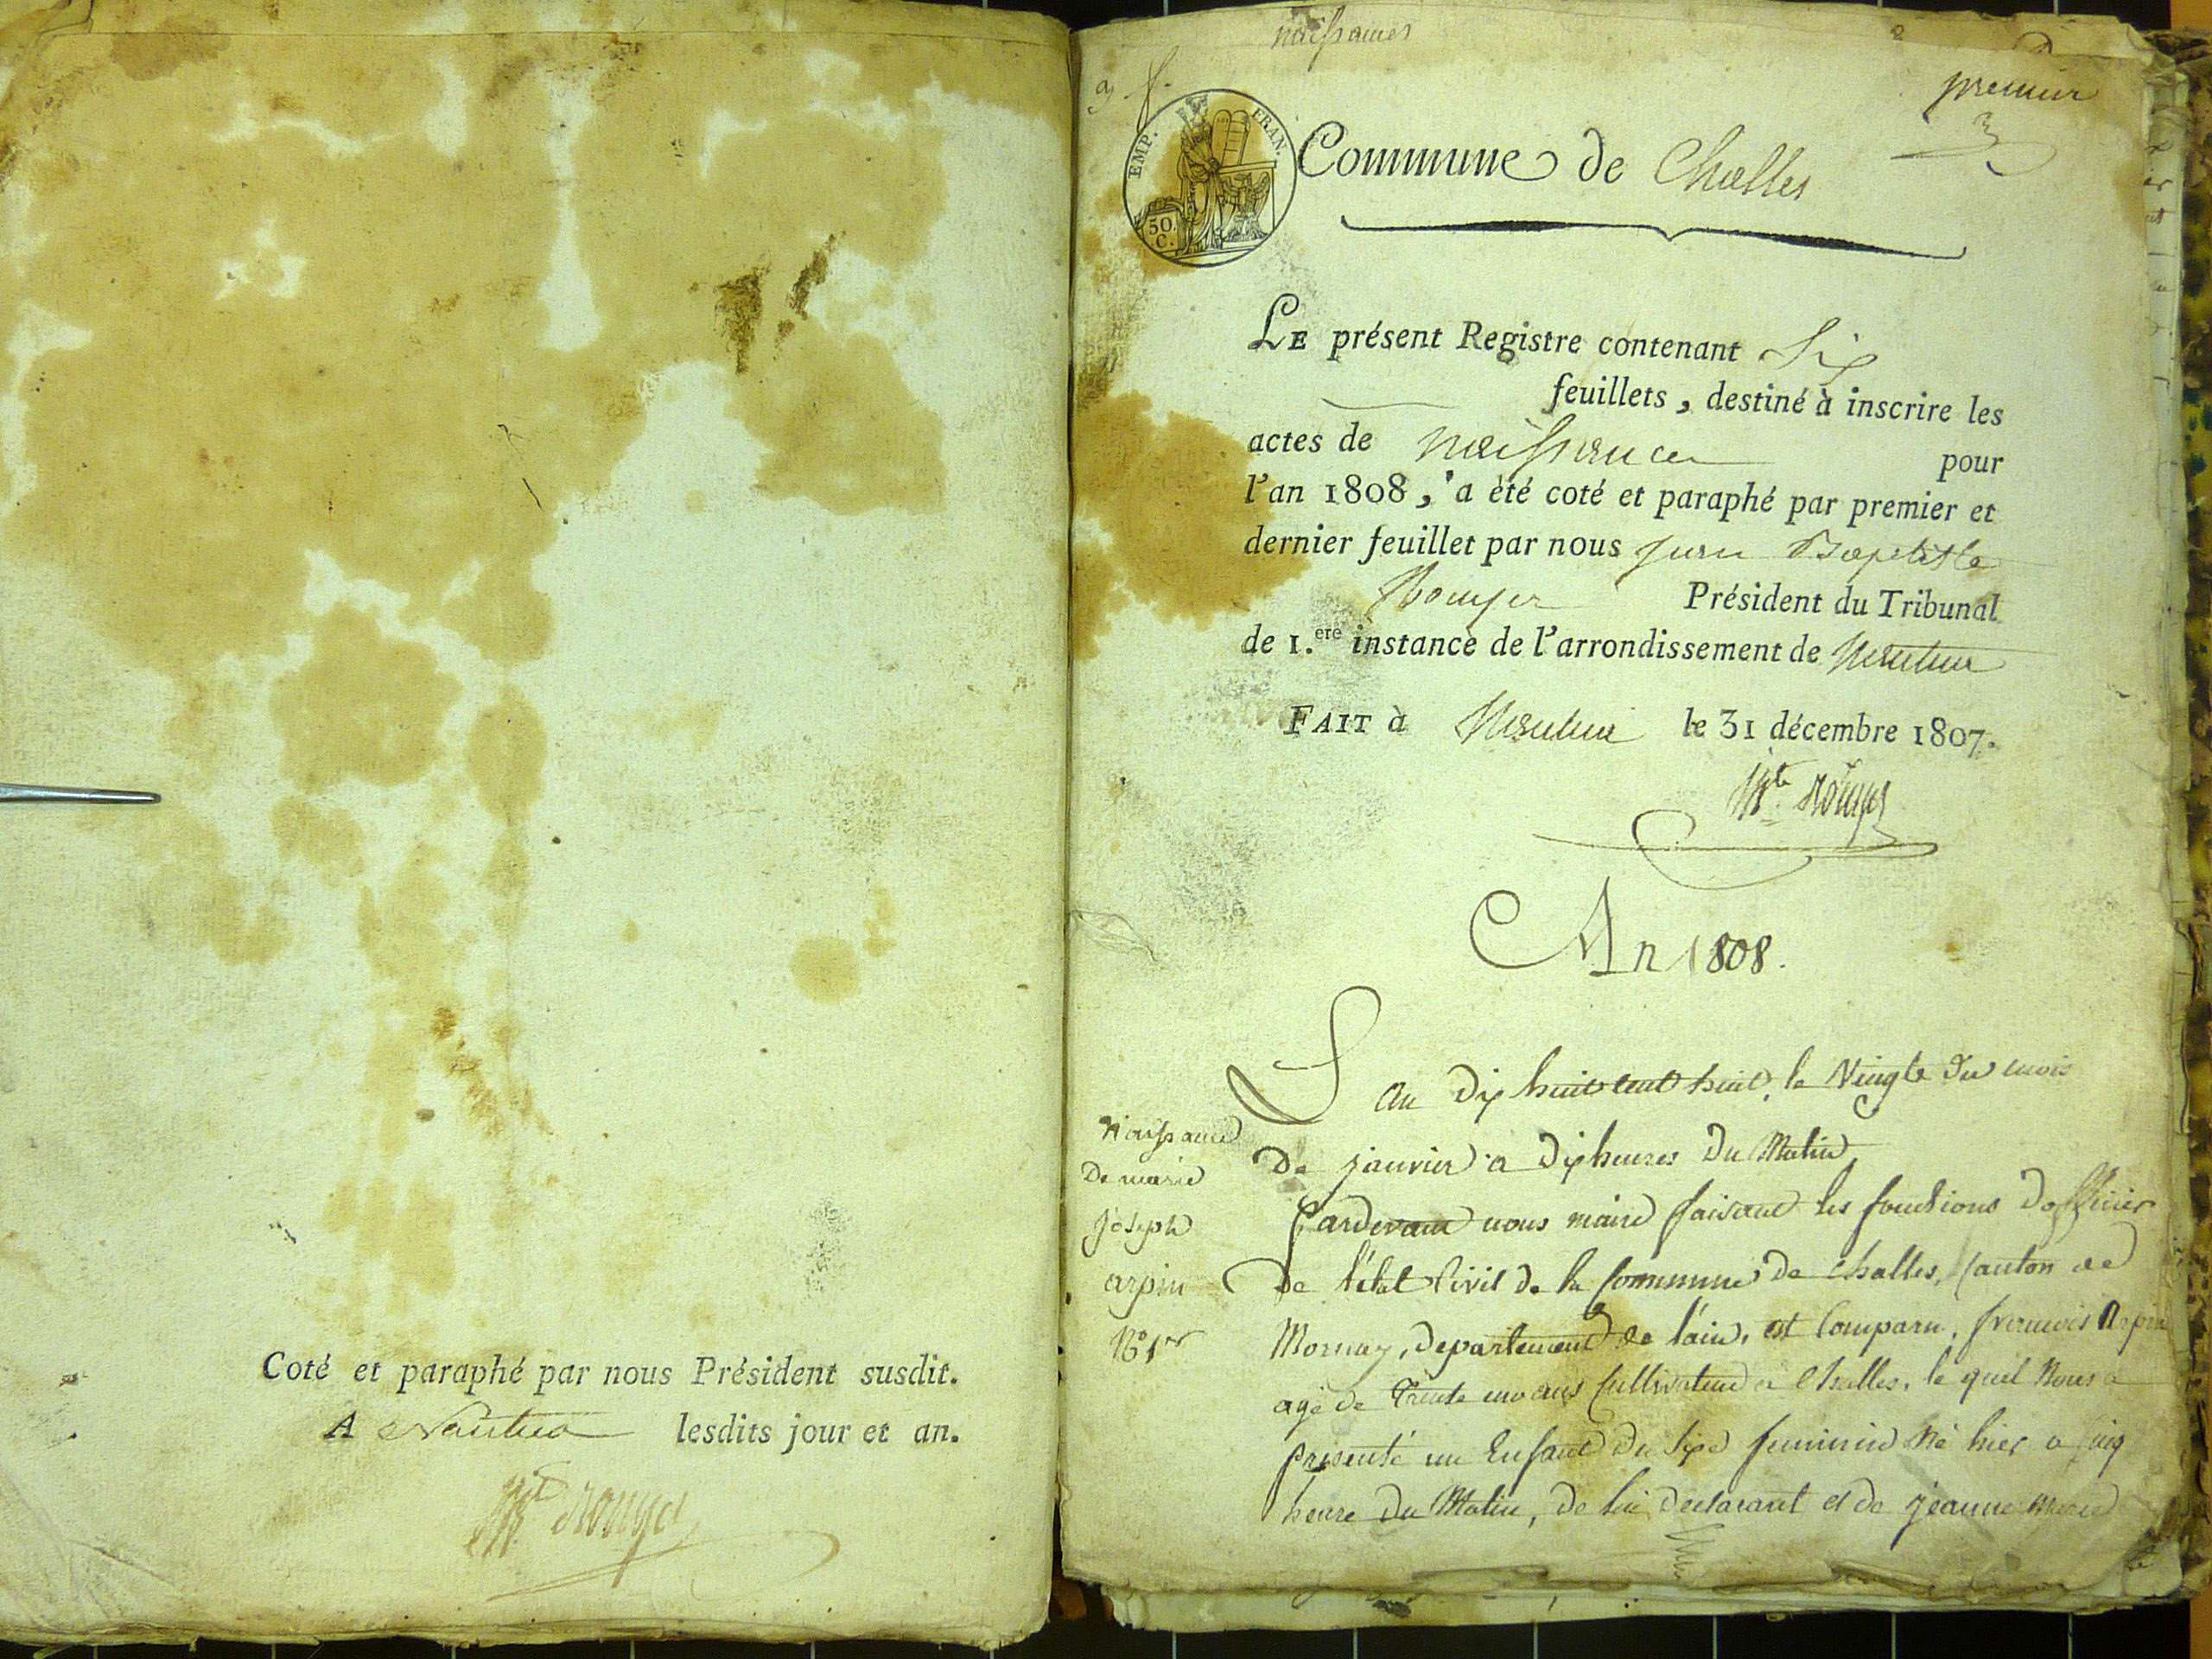 Coté et paraphé par nous Président susdit.
A Nantua lesdits jour et an.
J. Bte Rouyer
naissances
premier
EMP. FRAN.
50.
C.
Commune de Challes
LE présent Registre contenant Six
feuillets, destiné à inscrire les
actes de naissances pour
l'an 1808, a été coté et paraphé par premier et
dernier feuillet par nous Jean Baptiste
Rouyer Président du Tribunal
de 1.ere instance de l'arrondissement de Nantua
FAIT à Nantua le 31 décembre 1807.
J. Bte Rouyer
An 1808.
Naissance
De marie
joseph
arpin
No 1er
L'an Dix huit cent huit, le Vingt du mois
De janvier a Dix heures Du Matin
Pardevant nous maire faisant les fonctions Dofficier
De l'état Civil De la Commune De Challes, Canton de
Mornay, Departement de l'ain, est Comparu, francois Arpin
agé De Trente un ans Cultivateur a Challes, le quel Nous a
presenté un Enfant Du Sexe feminin Né hier a Cinq
heure Du Matin, De lui Declarant et De jeanne Marie